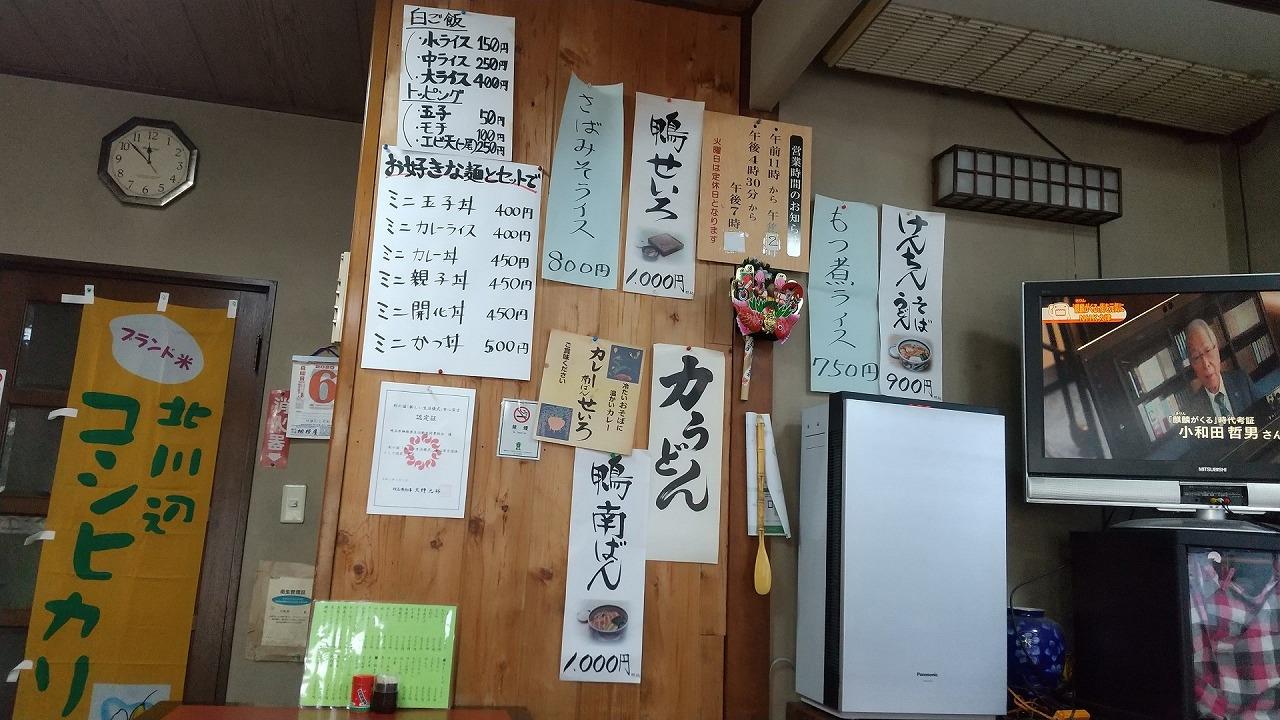 白ご飯
・小ライス 150円
・中ライス 250円
・大ライス 400円
トッピング
・玉子 50円
・モチ 100円
・エビ天(一尾)250円
お好きな麺とセットで
ミニ玉子丼 400円
ミニカレーライス 400円
ミニカレー丼 450円
ミニ親子丼 450円
ミニ開化丼 450円
ミニかつ丼 500円
さばみそライス
800円
鴨せいろ
1,000円
営業時間のお知らせ
午前11時から
午後4時30分から
午後7時
火曜日は定休日となります
もつ煮ライス
750円
けんちんそばうどん
900円
冷たいおそばに
温かいカレー
カレー南ばんせいろ
ご賞味ください
力うどん
鴨南ばん
1,000円
認定証
ブランド米
北川辺
コシヒカリ
消火器
6
「麒麟がくる」時代考証
小和田 哲男さん
MITSUBISHI
Panasonic